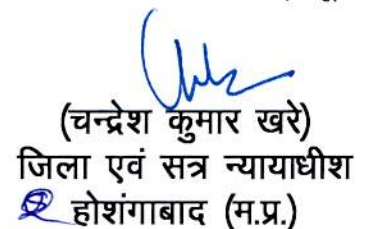 (चन्द्रेश कुमार खरे)
जिला एवं सत्र न्यायाधीश
होशंगाबाद (म.प्र.)